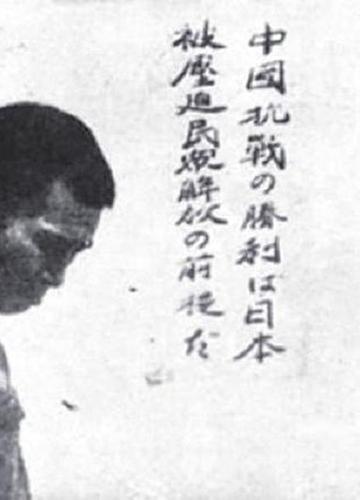 中國抗戰の勝利は日本
被壓迫民衆解放の前提だ